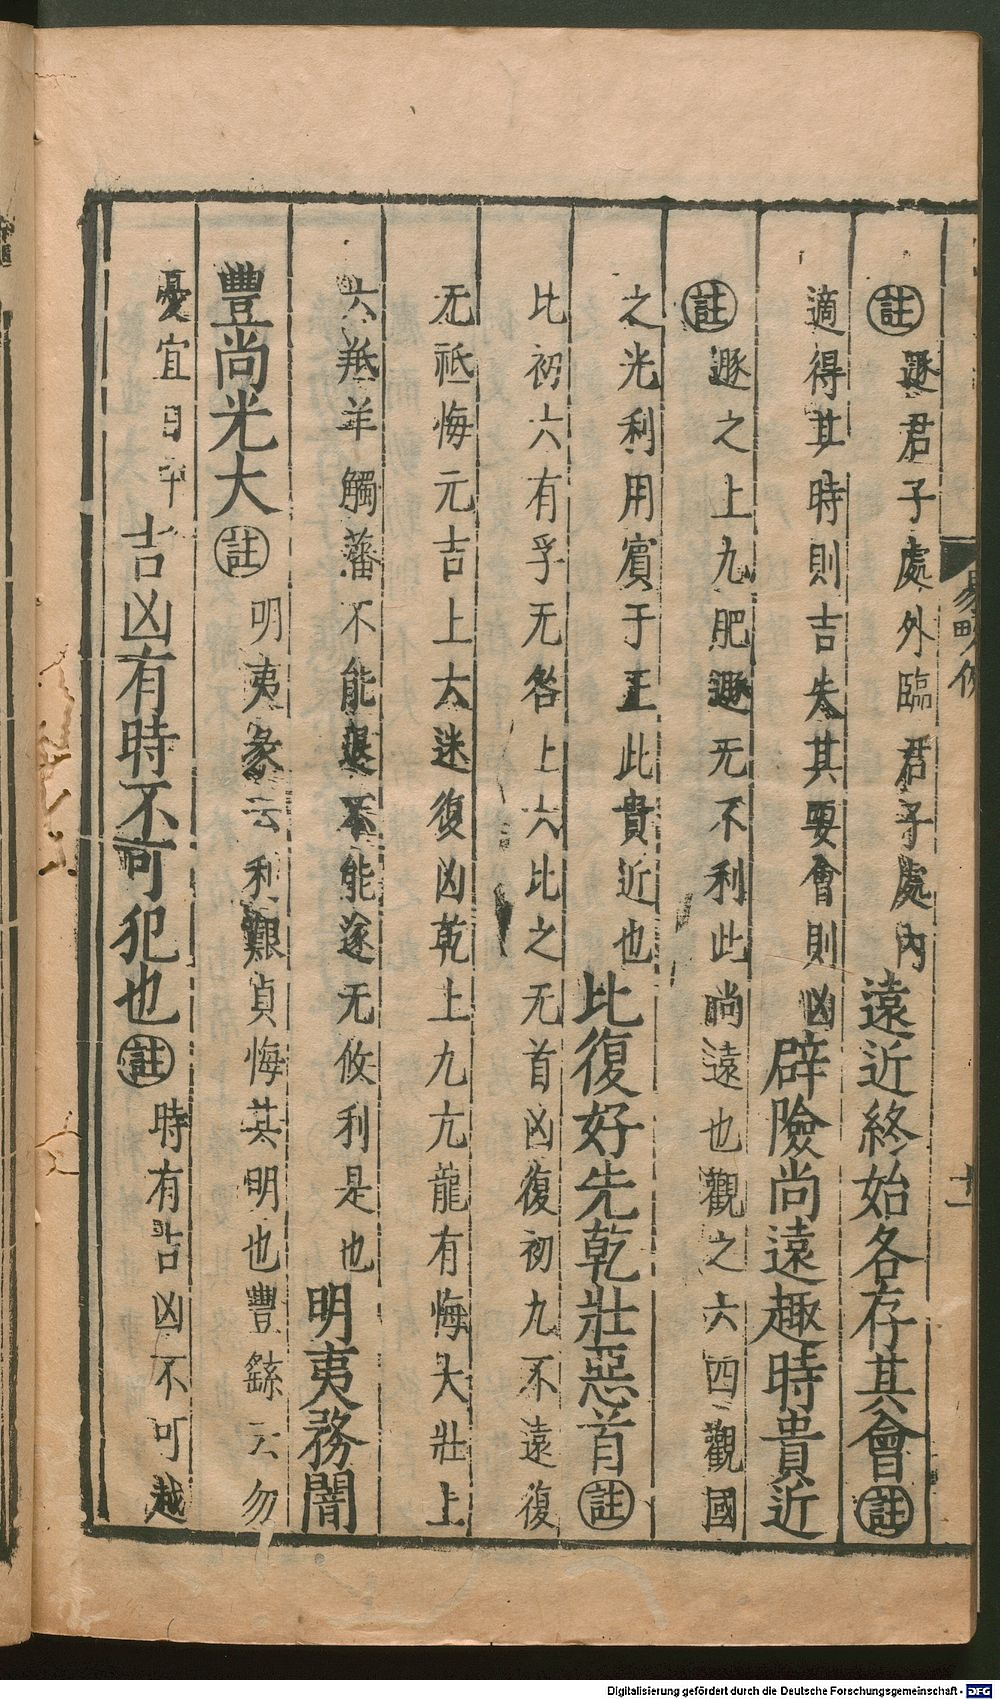 註遯君子處外臨君子處內遠近終始各存其會註
適得其時則吉失其要會則凶辟險尚遠趣時貴近
註遯之上九肥遯无不利此尚遠也觀之六四觀國
之光利用賓于王此貴近也比復好先乾壯惡首註
比初六有孚无咎上六比之无首凶復初九不遠復
无祗悔元吉上六迷復凶乾上九亢龍有悔大壯上
六羝羊觸藩不能退不能遂无攸利是也明夷務闇
豐尚光大註明夷彖云利艱貞悔其明也豐繇云勿
憂宜日中吉凶有時不可犯也註時有吉凶不可越
Digitalisierung gefördert durch die Deutsche Forschungsgemeinschaft - DFG